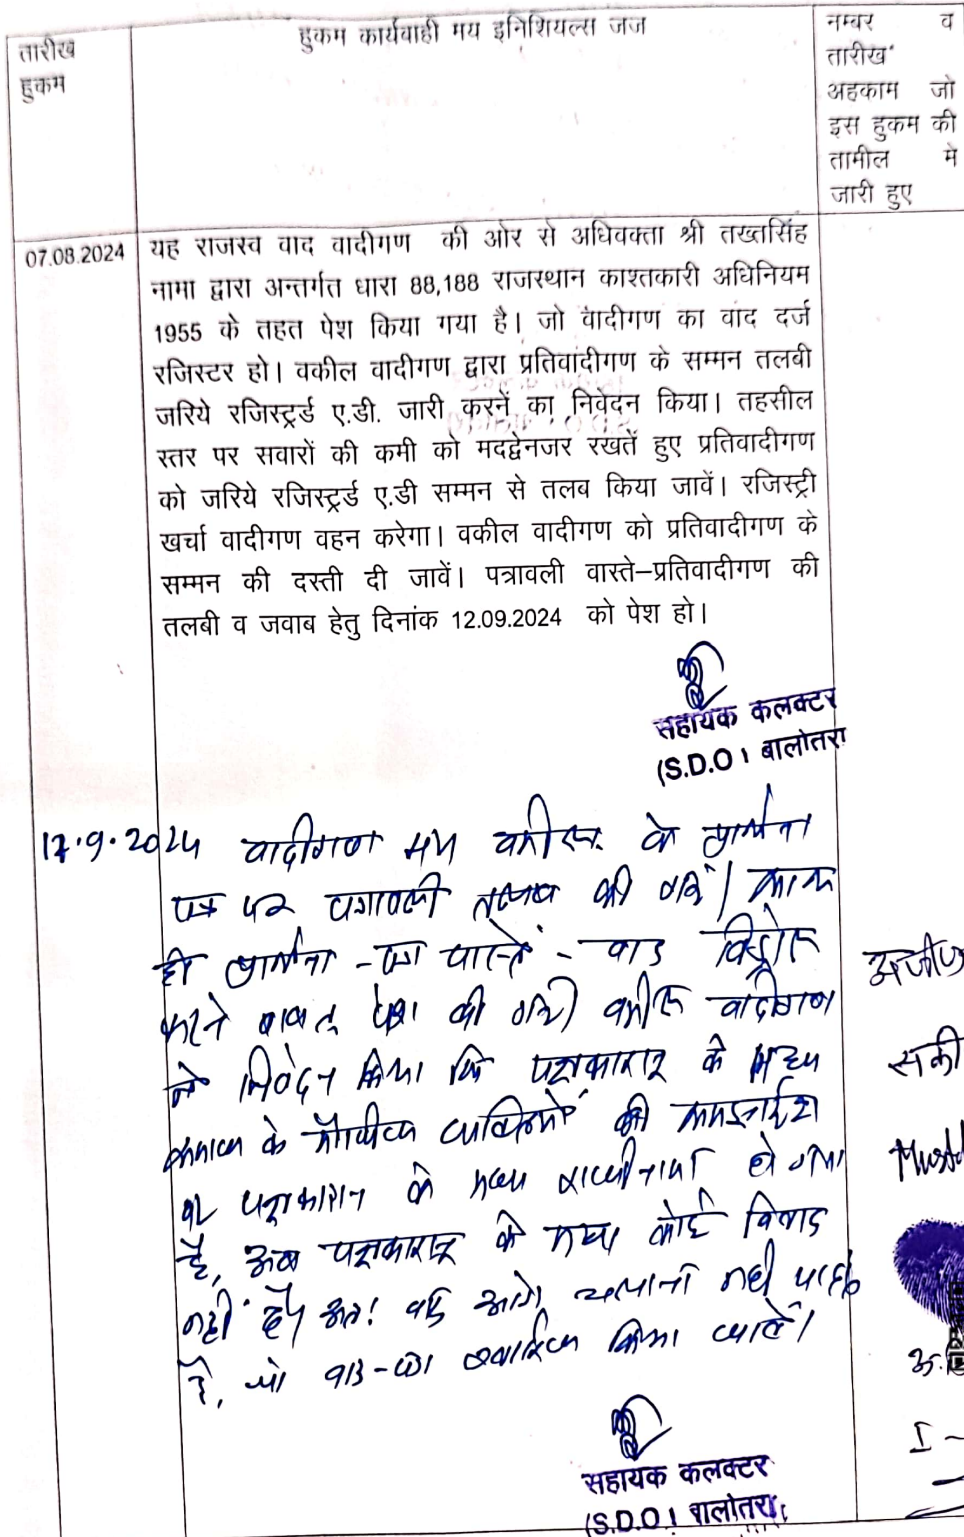 तारीख
हुकम
हुकम कार्यवाही मय इनिशियल्स जज
नम्बर व
तारीख
अहकाम जो
इस हुकम की
तामील मे
जारी हुए
07.08.2024
यह राजस्व वाद वादीगण की ओर से अधिवक्ता श्री तख्तसिंह
नामा द्वारा अन्तर्गत धारा 88,188 राजस्थान काश्तकारी अधिनियम
1955 के तहत पेश किया गया है। जो वादीगण का वाद दर्ज
रजिस्टर हो। वकील वादीगण द्वारा प्रतिवादीगण के सम्मन तलबी
जरिये रजिस्ट्रर्ड ए.डी. जारी करनें का निवेदन किया। तहसील
स्तर पर सवारों की कमी को मदद्वेनजर रखतें हुए प्रतिवादीगण
को जरिये रजिस्ट्रर्ड ए.डी सम्मन से तलब किया जावें। रजिस्ट्री
खर्चा वादीगण वहन करेगा। वकील वादीगण को प्रतिवादीगण के
सम्मन की दस्ती दी जावें। पत्रावली वास्ते–प्रतिवादीगण की
तलबी व जवाब हेतु दिनांक 12.09.2024 को पेश हो।
सहायक कलक्टर
(S.D.O। बालोतरा
वादीगण मय वकील के प्रार्थना
पत्र पर पत्रावली तलब की गई।
ही प्रार्थना - पत्र वास्ते - वाद विड्रोल
करने बाबत पेश की गयी वकील वादीगण
ने निवेदन किया कि पक्षकारान के मध्य
समाज के मौजीज व्यक्तियों की समझाईश
पर पक्षकारान के मध्य राजीनामा हो गया
है, अब पक्षकारान के मध्य कोई विवाद
नही है। अतः वाद आगे चलाना नही चाहते
है, वाद को खारिज किया जावे।
सहायक कलक्टर
(S.D.O। बालोतरा